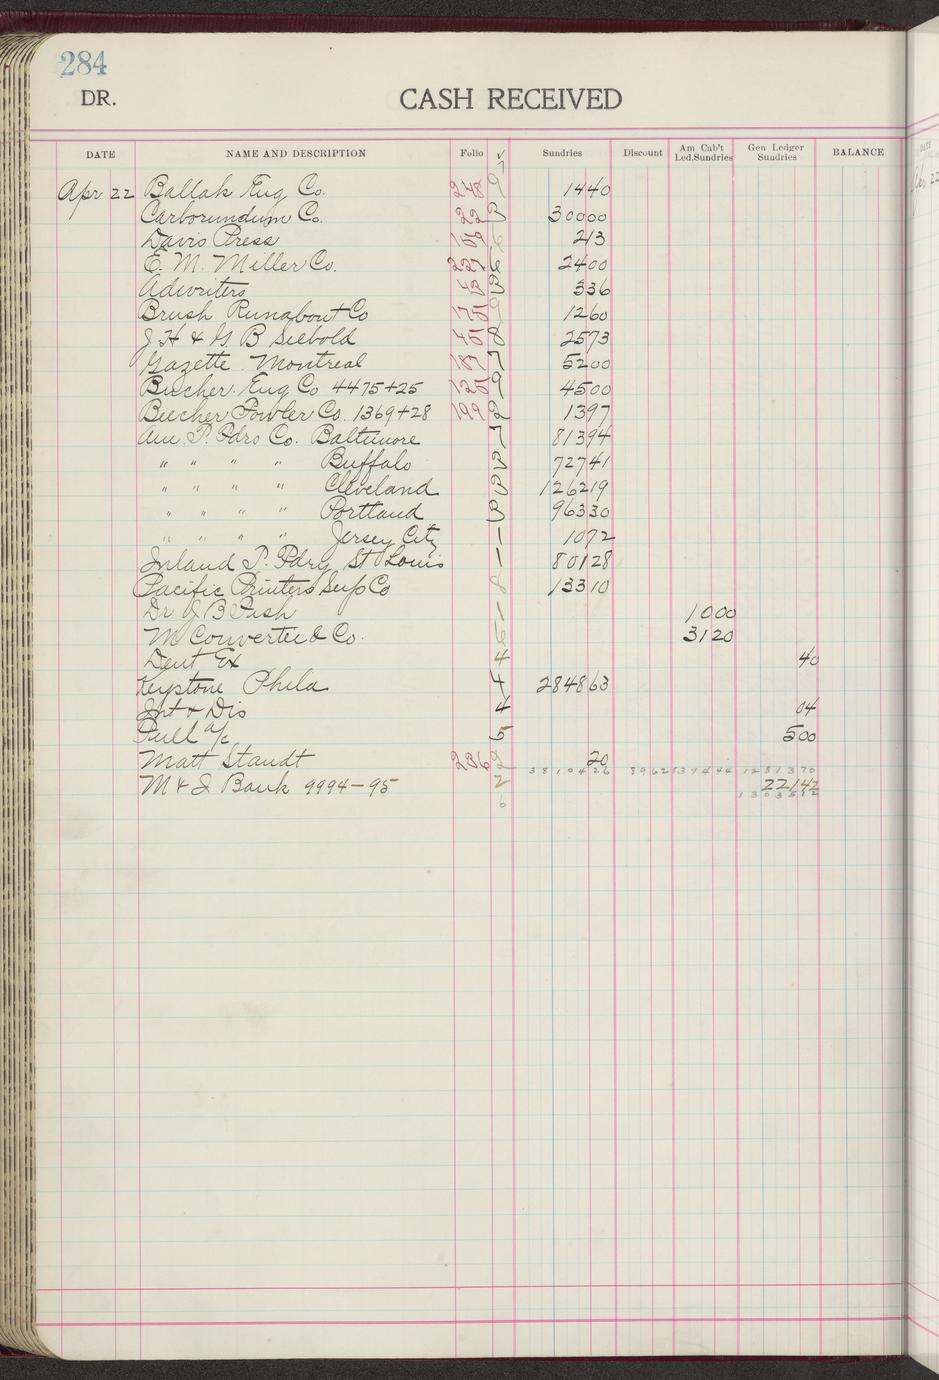 284
DR.
CASH RECEIVED
DATE NAME AND DESCRIPTION Folio ✓ Sundries Discount Am Cab't Led.Sundries Gen Ledger Sundries BALANCE
Apr 22 Ballak Eng Co. 248 9 1440
Carborundum Co. 22 8 30000
Davis Press 109 6 213
E. M. Miller Co. 227 6 2400
Adwriters 48 8 336
Brush Runabout Co 9 1260
J H & G B Siebold 8 2573
Gazette Montreal 187 7 5200
Bucher Eng Co 4475+25 125 9 4500
Beecher Fowler Co. 1369+28 199 2 1397
Am. T. Fdrs Co. Baltimore 7 81394
" " " " Buffalo 8 72741
" " " " Cleveland 8 126219
" " " " Portland 8 96330
" " " " Jersey City 1 1072
Inland T. Fdry St Louis 1 80128
Pacific Printers Sup Co 8 13310
Dr. J B Fish 1 1000
M Convertee & Co. 6 3120
Dent Ex 4 40
Keystone Phila 4 284863
Int & Dis 4 04
Pull a/c 5 500
Matt Staudt 286 2 20
3810426 89628 39444 1281370
M & I Bank 9994-95 2 22142
6 1303512